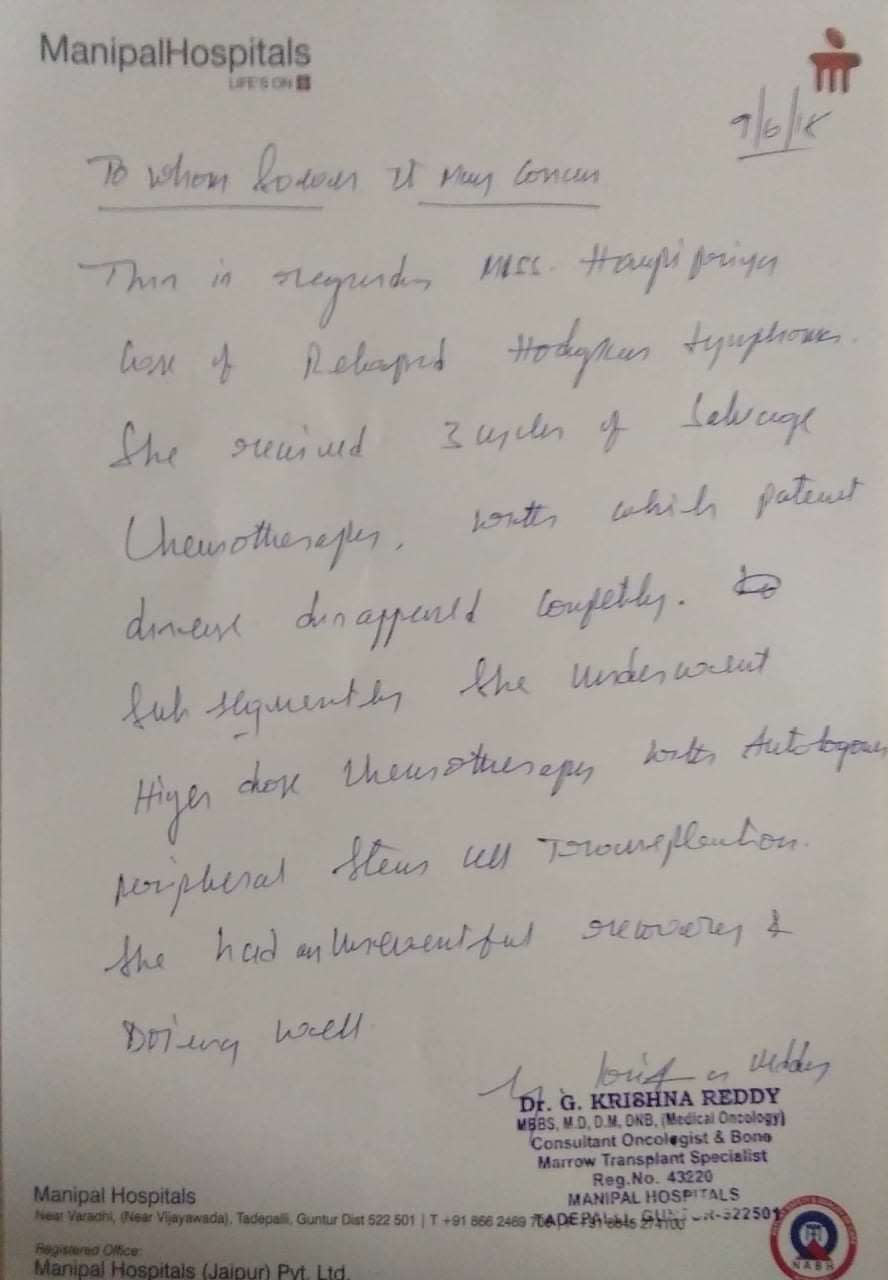 ManipalHospitals
LIFE'S ON
9/6/18
To Whom Soever It May Concern
This is regarding Miss. Haripriya
Case of Relapsed Hodgkins Lymphoma.
She received 3 cycles of Salvage
Chemotherapy, with which patient
disease disappeared completely.
Subsequently she underwent
Higer dose Chemotherapy with Autologous
peripheral Stem cell Transplantion.
She had an Uneventful recovery &
Doing well
Dr. G. KRISHNA REDDY
MBBS, M.D, D.M, DNB, (Medical Oncology)
Consultant Oncologist & Bone
Marrow Transplant Specialist
Reg.No. 43220
MANIPAL HOSPITALS
TADEPALLI, GUNTUR-522501
Manipal Hospitals
Near Varadhi, (Near Vijayawada), Tadepalli, Guntur Dist 522 501 | T +91 866 2469
Registered Office:
Manipal Hospitals (Jaipur) Pvt. Ltd.
NABH